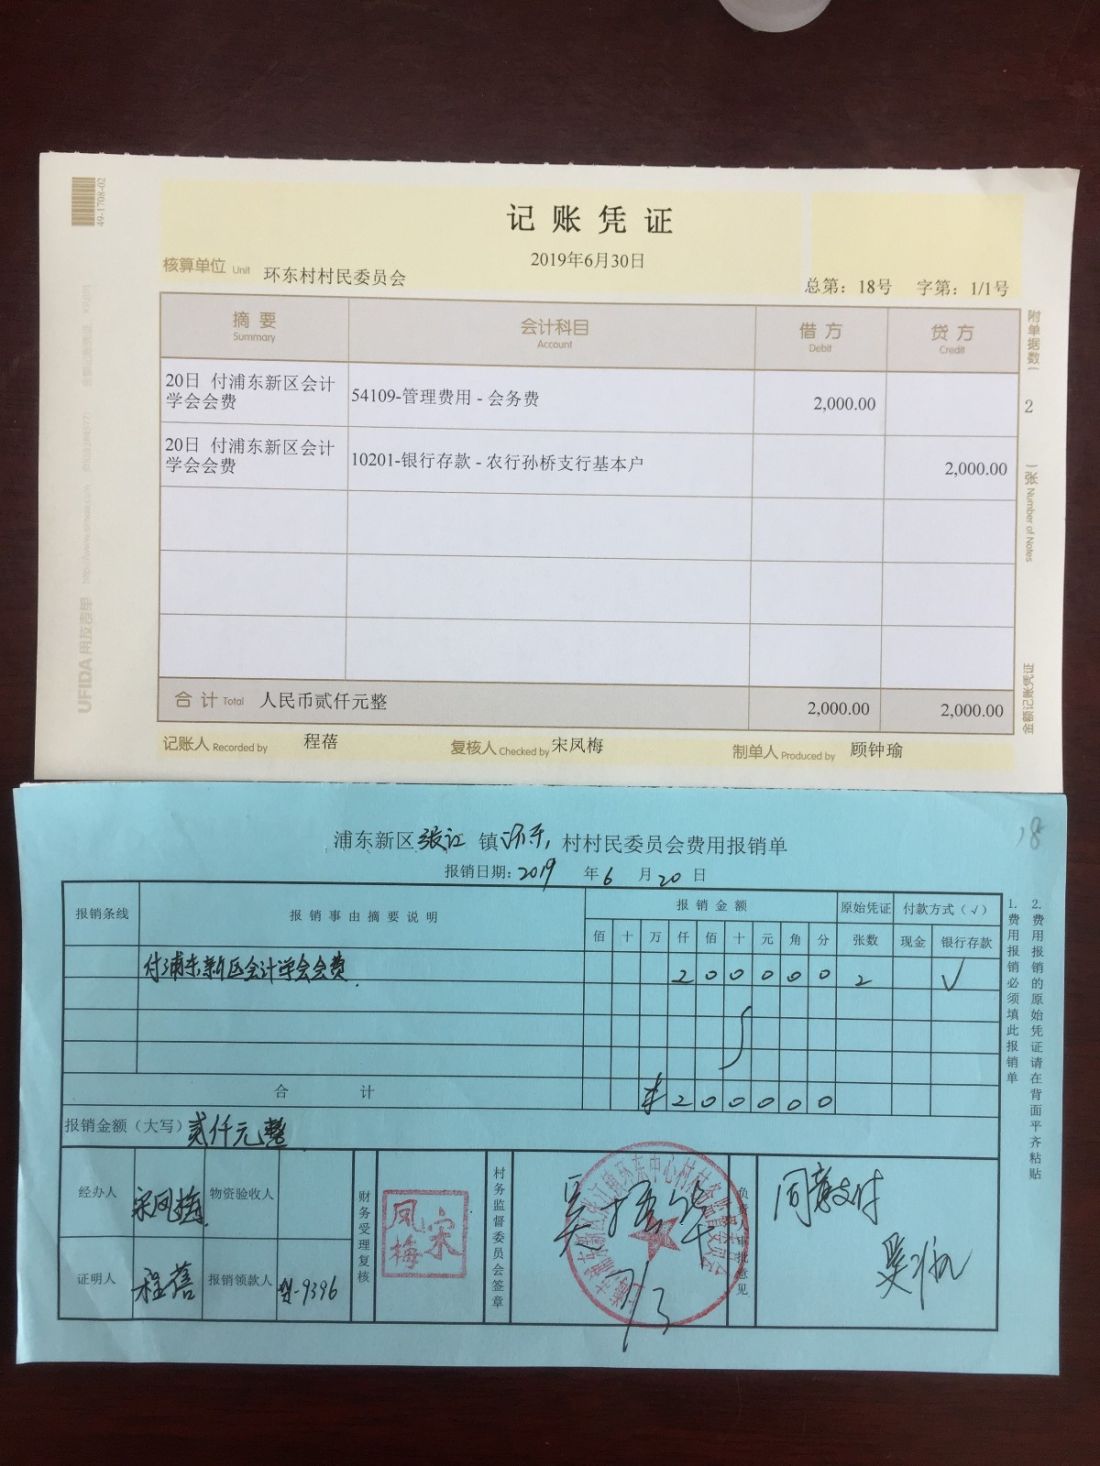 49-1708-02
记账凭证
2019年6月30日
核算单位 Unit 环东村村民委员会
总第：18号 字第：1/1号
摘要 会计科目 借方 贷方
Summary Account Debit Credit
附单据数 2 张 Number of Notes
20日 付浦东新区会计
学会会费
54109-管理费用 - 会务费 2,000.00
20日 付浦东新区会计
学会会费
10201-银行存款 - 农行孙桥支行基本户 2,000.00
合计 Total 人民币贰仟元整 2,000.00 2,000.00
记账人 Recorded by 程蓓 复核人 Checked by 宋凤梅 制单人 Produced by 顾钟瑜
金额记账凭证
UFIDA 用友表单
18
浦东新区张江镇环东村村民委员会费用报销单
报销日期：2019年6月20日
报销条线 报销事由摘要说明 报销金额 原始凭证 付款方式（√）
佰 十 万 仟 佰 十 元 角 分 张数 现金 银行存款
付浦东新区会计学会会费 2 0 0 0 0 0 2 √
合计 ¥ 2 0 0 0 0 0
报销金额（大写） 贰仟元整
经办人 宋凤梅 物资验收人
证明人 程蓓 报销领款人 -9396
财务受理复核
宋凤梅
村务监督委员会签章
7/3
负责人审批意见
同意支付
1.费用报销必须填此报销单
2.费用报销的原始凭证请在背面平齐粘贴